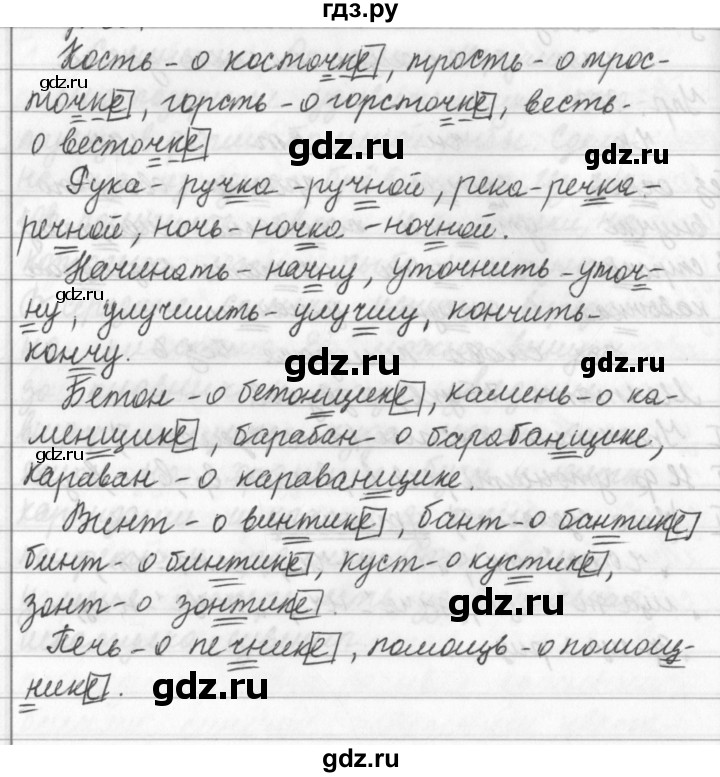 гдз.ру
Кость - о косточке, трость - о трос-
gdz.ru
gdz.ru
точке, горсть - о горсточке, весть -
о весточке
gdz.ru
gdz.ru
Рука - ручка - ручной, река - речка -
речной, ночь - ночка - ночной.
Начинать - начну, уточнить - уточ-
gdz.ru
ну, улучшить - улучшу, кончить -
кончу.
gdz.ru
gdz.ru
Бетон - о бетонщике, камень - о ка-
менщике, барабан - о барабанщике,
gdz.ru
караван - о караванщике.
Винт - о винтике, бант - о бантике
бинт - о бинтике, куст - о кустике,
зонт - о зонтике
gdz.ru
Печь - о печнике, помощь - о помощ-
нике.
gdz.ru
gdz.ru